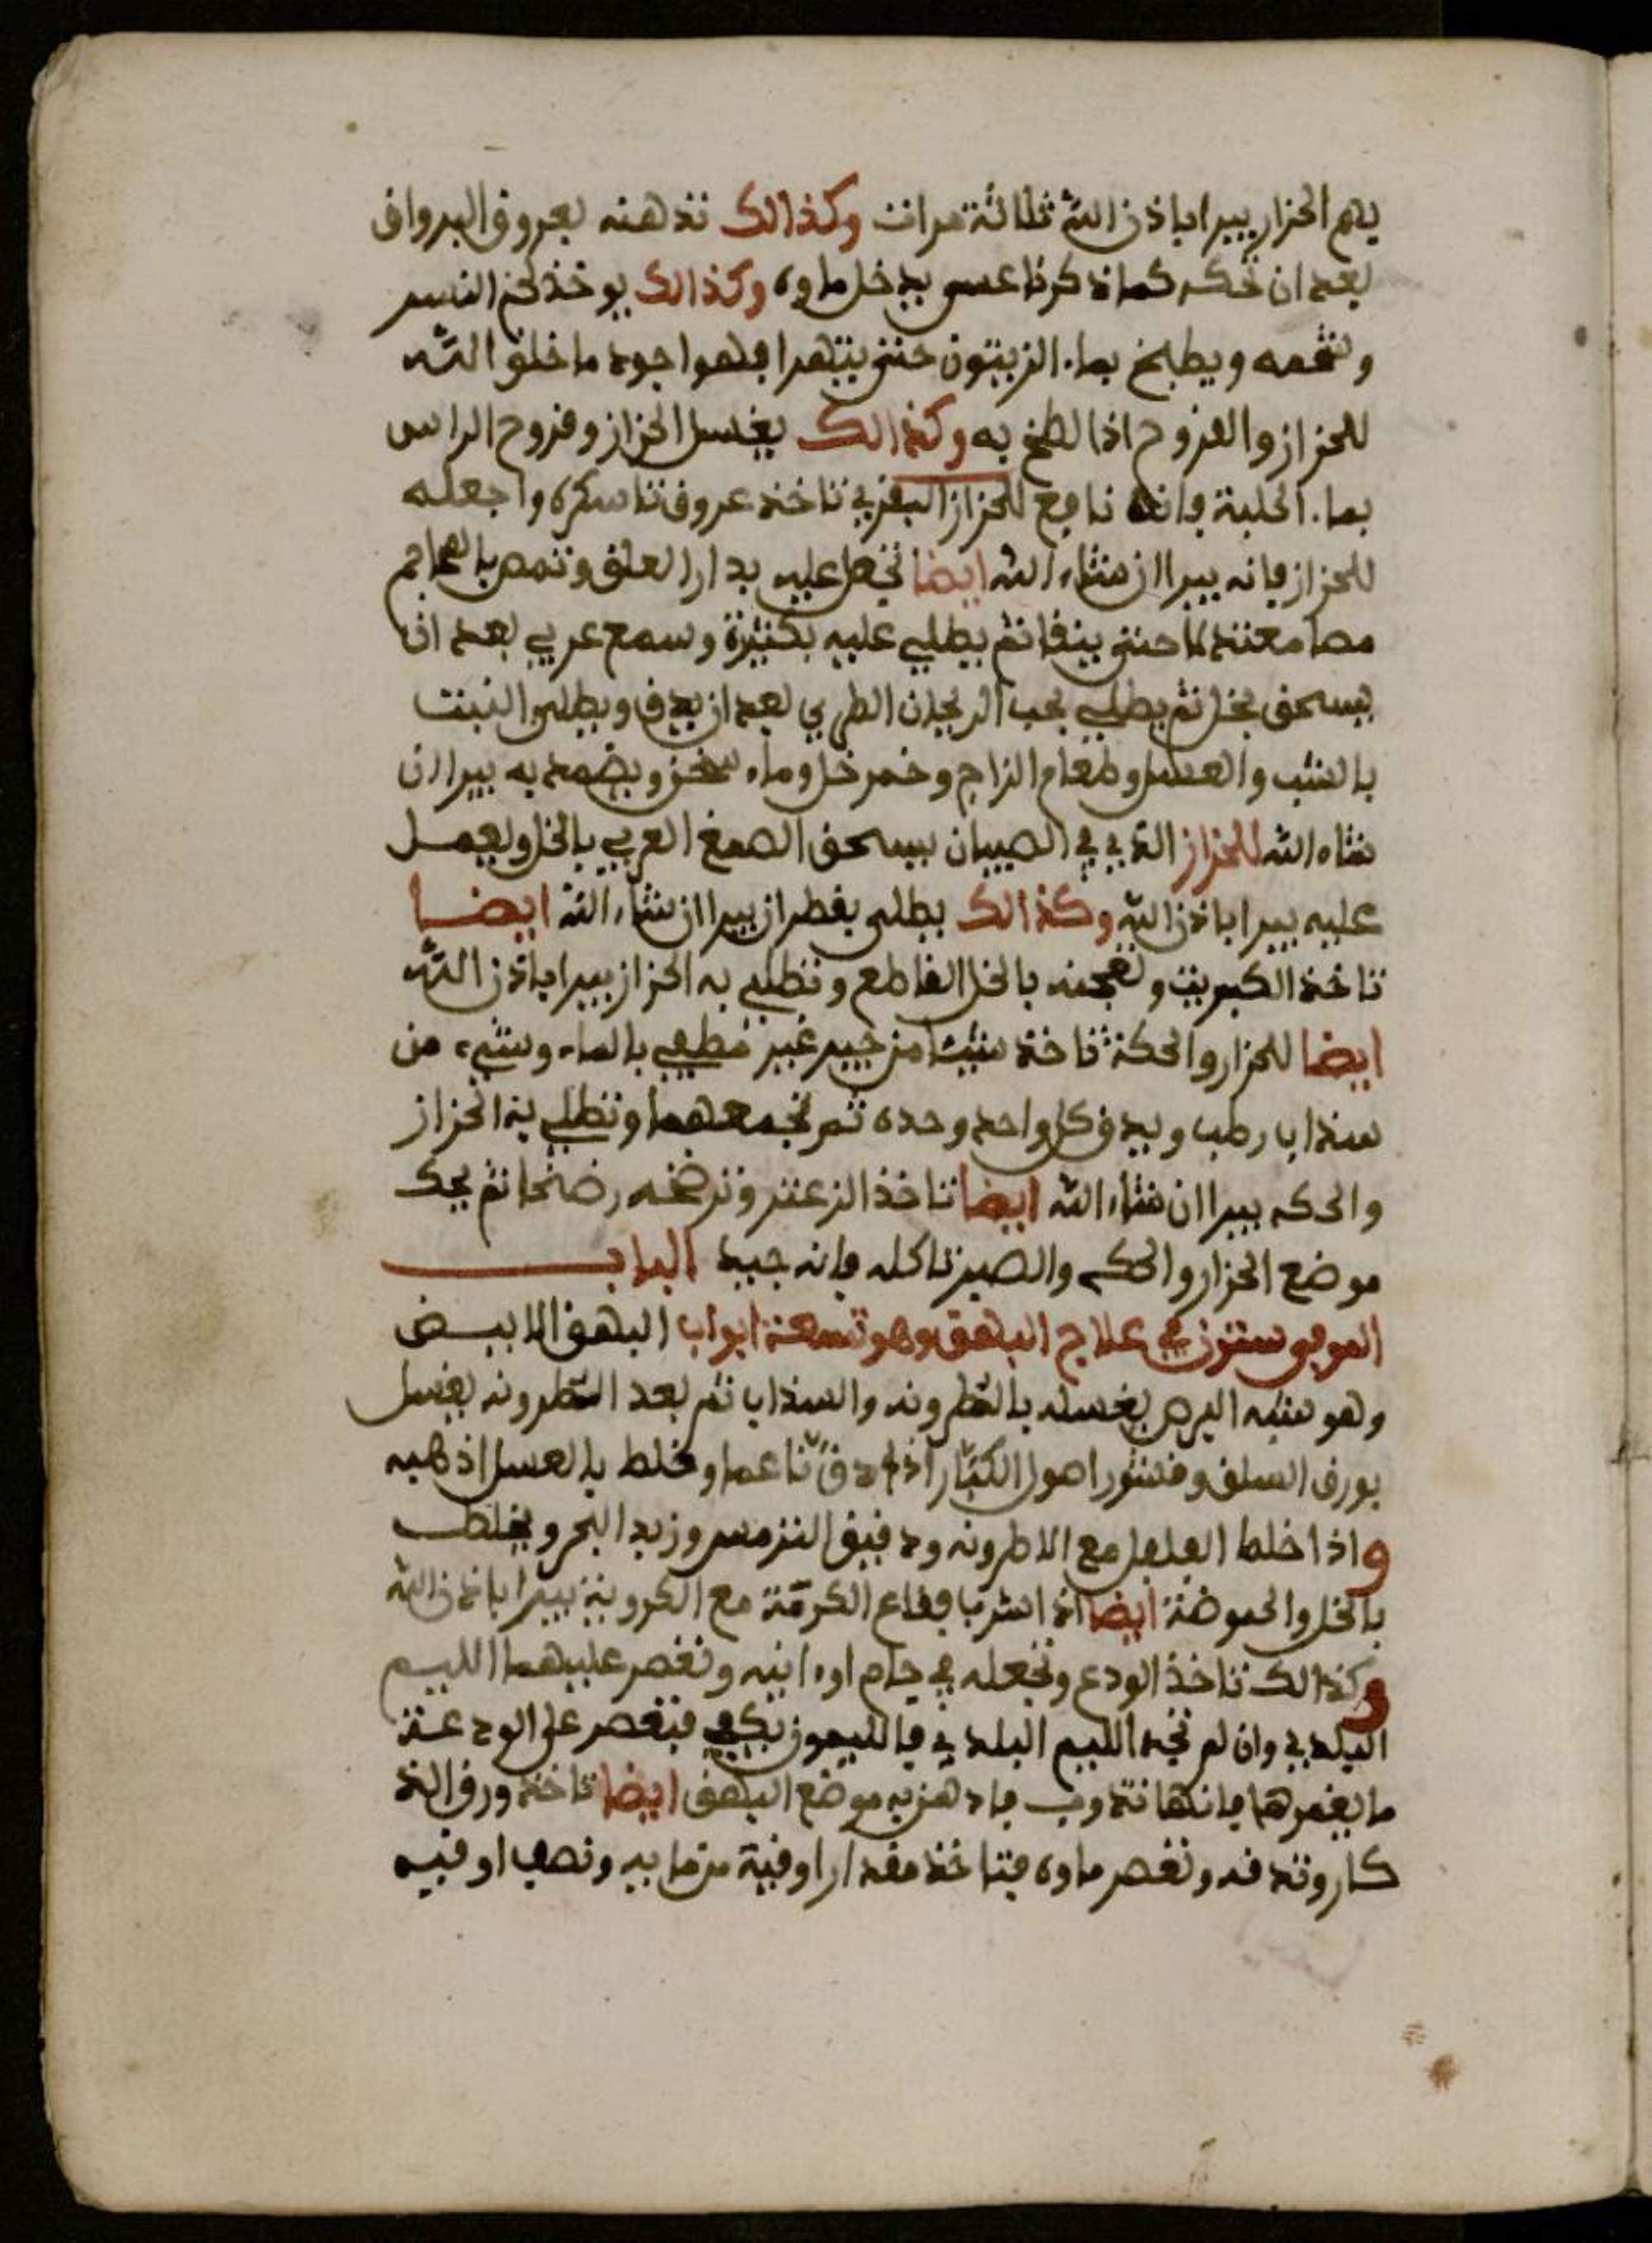 يهم الحزاز يبيرا باذن الله ثلاثة مرات وكذالك تدهنه بعروق البرواق
بعد ان تحكه كما ذكرنا عسى يدخل ماوه وكذالك يوخذ لحم النسر
وشحمه ويطبخ بماء الزيتون حتى يتهرا فهوا جود ما خلق الله
للحزاز والقروح اذا لطخ به وكذالك يغسل الحزاز وقروح الراس
بماء الحلبة فانه نافع للحزاز البقري تاخذ عروق تاسكره واجعله
للحزاز فانه يبرا ان شاء الله ايضا تجعل عليه بدار العلق وتمص بالمحاجم
مصا معتدلا حتى ينقا ثم يطلي عليه بكثيرة وسمع عربي بعد ان
يسحق بخل ثم يطلي بحب الريحان الطري بعد ان يدق ويطلى
بالشب والعسل وطعام الزاج وخمر خل وماء سخن ويضمد به يبرا ان
شاء الله للحزاز الذي في الصبيان يسحق الصمغ العربي بالخل ويعمل
عليه يبرا باذن الله وكذالك يطلى بقطران يبرا ان شاء الله ايضا
تاخذ الكبريت وتعجنه بالخل القاطع وتطلي به الحزاز يبرا باذن الله
ايضا للحزاز والحكة تاخذ شيئا من جير غير مطفي بالماء وشيء من
سنداب رطب ويدق كل واحد وحده ثم تجمعهما وتطلي به الحزاز
والحكه يبرا ان شاء الله ايضا تاخذ الزعتر وترضخه رضخا ثم يحك
موضع الحزاز والحكه والصير تاكله فانه جيد الباب
الموفي ستون في علاج البهق وهو تسعة ابواب البهق الابيض
وهو شبه البرص يغسله بالطرونه والسنداب ثم بعد الطرونه يغسل
بورق السلق وقشور اصول الكبار اذا دق ناعما وخلط بالعسل اذهبه
واذا خلط الفلفل مع الاطرونه ودقيق الترمس وزبد البحر ويخلط
بالخل والحموضة ايضا اذا اشرب افقاع الكرمة مع الكروية يبرا باذن الله
وكذالك تاخذ الودع وتجعله في جام او انيه وتعصر عليهما الليم
البلدي وان لم تجد الليم البلدي فالليمون يكفي فتعصر على الودعة
ما يغمرها فانها تذوب فادهن به موضع البهق ايضا تاخذ ورق الذ
كار وتدقه وتعصر ماوه فتاخذ مقدار اوقية من مايه ونصف اوقيه